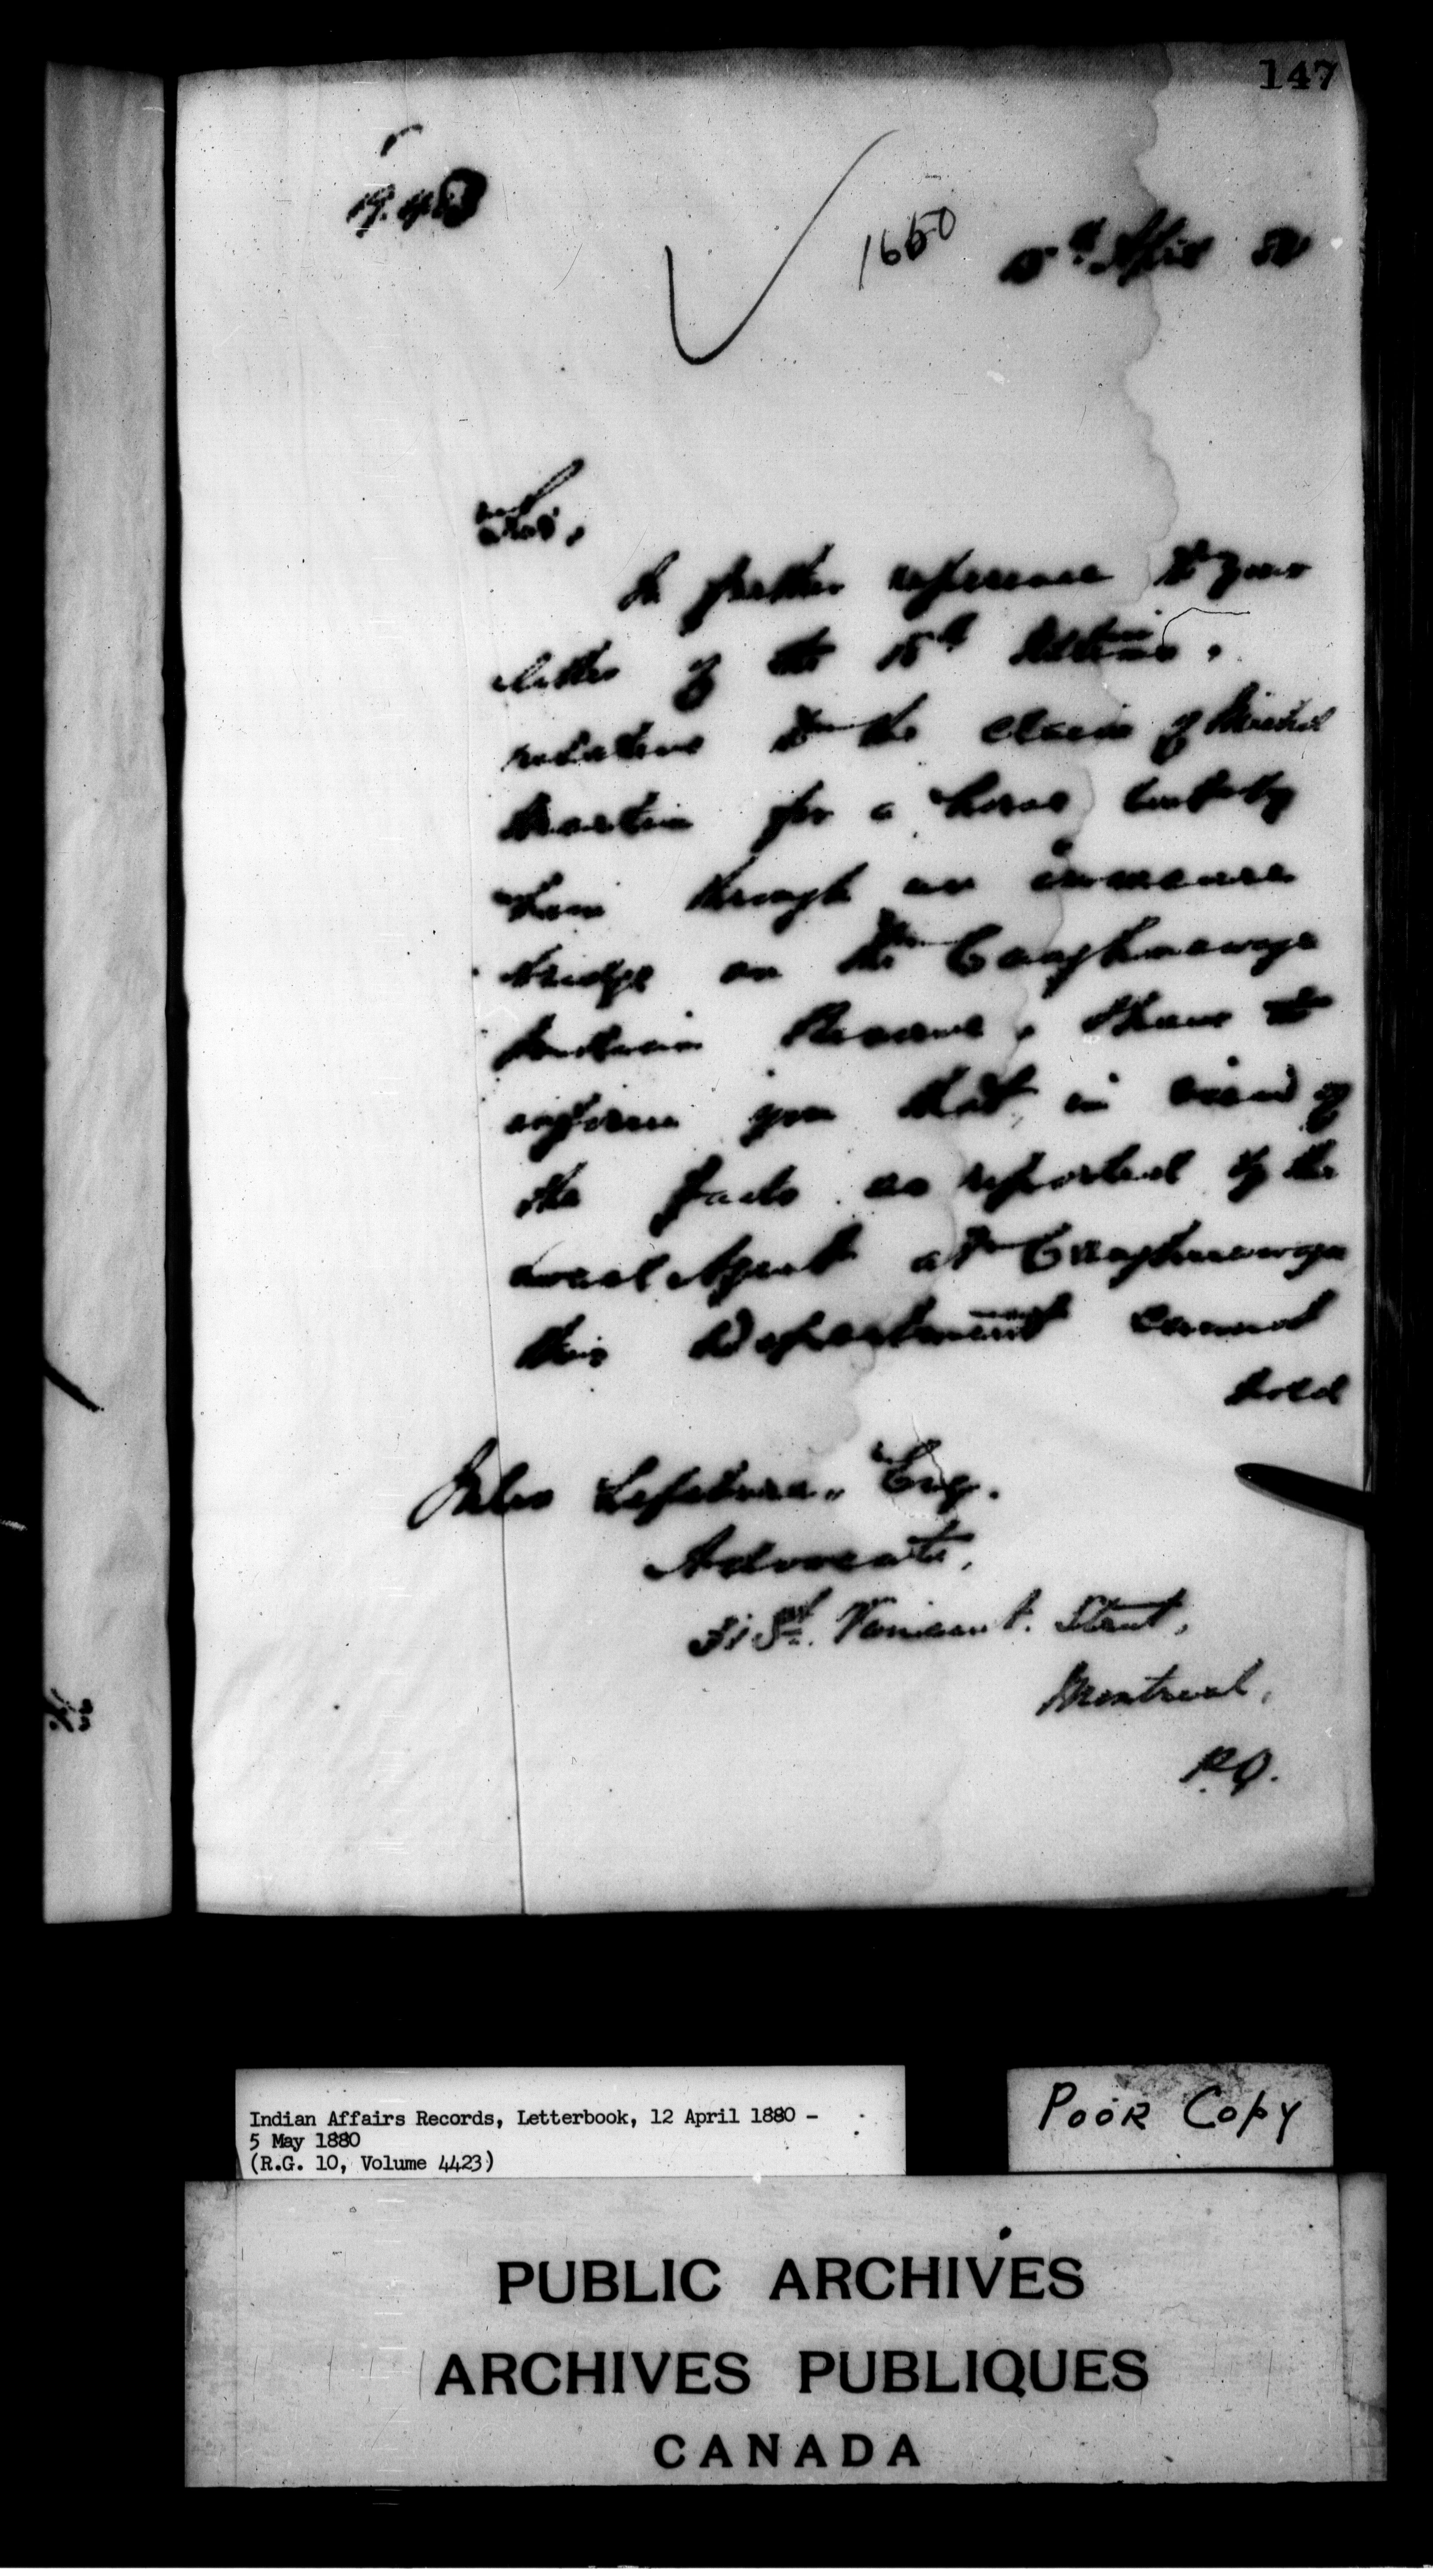 147
19.483
1660
15th April 80
Sir,
In further reference to your
letter of the 15th Ultimo,
relative to the claim of Michel
Martin for a horse lost by
him through an insecure
bridge on the Caughnawaga
Indian Reserve, I have to
inform you that, in view of
the facts as reported by the
Local Agent at Caughnawaga
this Department cannot
hold
Jules Lefebvre, Esq.
Advocate,
31 St. Vincent Street,
Montreal,
P.Q.
Indian Affairs Records, Letterbook, 12 April 1880 -
5 May 1880
(R.G. 10, Volume 4423)
POOR COPY
PUBLIC ARCHIVES
ARCHIVES PUBLIQUES
CANADA